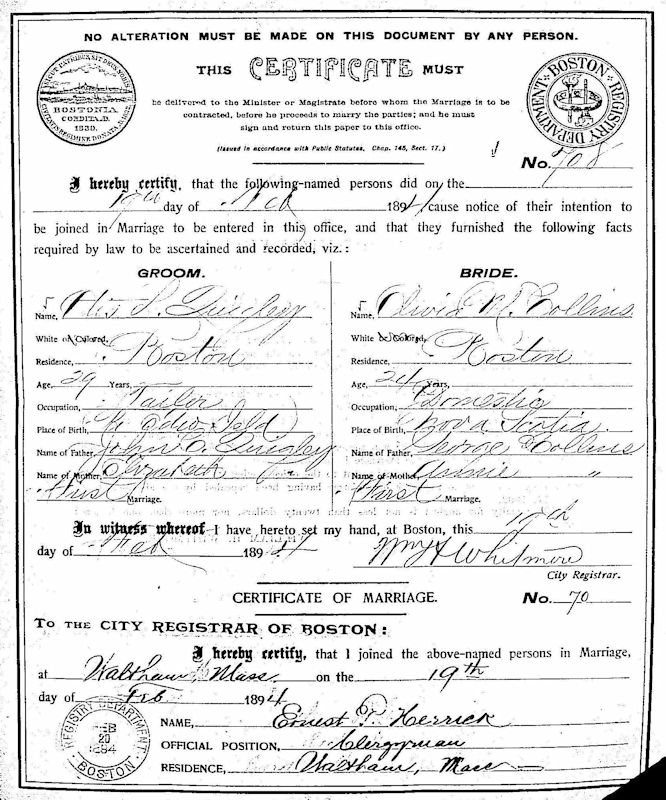 NO ALTERATION MUST BE MADE ON THIS DOCUMENT BY ANY PERSON.
BOSTONIA
CONDITA A.D.
1630.
THIS CERTIFICATE MUST
BOSTON REGISTRY DEPARTMENT
be delivered to the Minister or Magistrate before whom the Marriage is to be
contracted, before he proceeds to marry the parties; and he must
sign and return this paper to this office.
(Issued in accordance with Public Statutes, Chap. 145, Sect. 17.)
No. 708
I hereby certify, that the following-named persons did on the
19th day of Feb 1894 cause notice of their intention to
be joined in Marriage to be entered in this office, and that they furnished the following facts
required by law to be ascertained and recorded, viz.:
GROOM. BRIDE.
Name, Otis S. Quigley Name, Olivia M. Collins
White or Colored, White or Colored,
Residence, Boston Residence, Boston
Age, 29 Years, Age, 24 Years,
Occupation, Tailor Occupation, Domestic
Place of Birth, Pr Edw Isld Place of Birth, Nova Scotia
Name of Father, John C. Quigley Name of Father, George Collins
Name of Mother, Elizabeth " Name of Mother, Annie "
First Marriage. First Marriage.
In witness whereof I have hereto set my hand, at Boston, this 19th
day of Feb 1894 Wm H Whitmore
City Registrar.
CERTIFICATE OF MARRIAGE. No. 70
TO THE CITY REGISTRAR OF BOSTON:
I hereby certify, that I joined the above-named persons in Marriage,
at Waltham Mass. on the 19th
day of Feb 1894
REGISTRY DEPARTMENT
FEB
20
1894
BOSTON
NAME, Ernest P. Herrick
OFFICIAL POSITION, Clergyman
RESIDENCE, Waltham, Mass